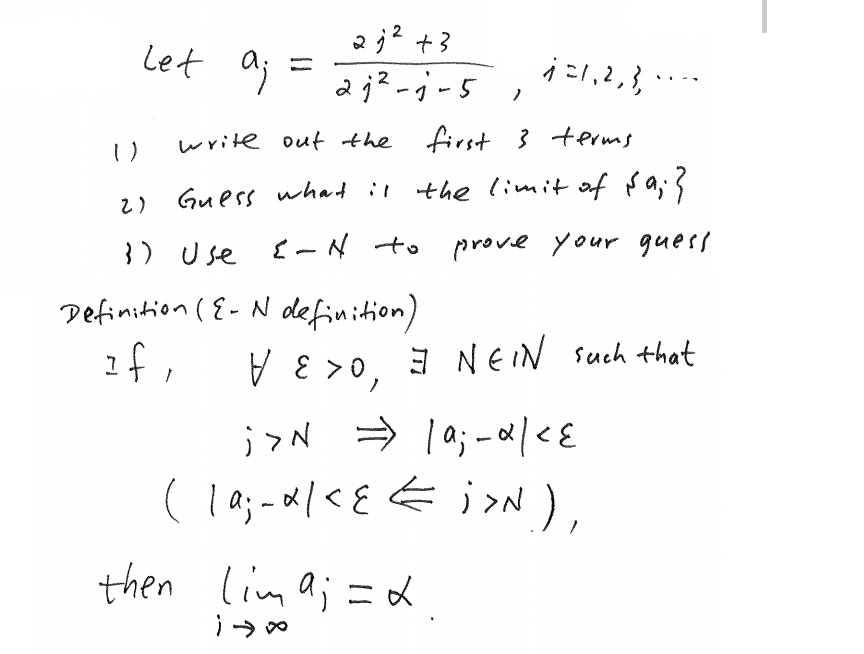 Let a_j = (2j² + 3) / (2j² - j - 5) , j = 1, 2, 3, ....
1) write out the first 3 terms
2) Guess what is the limit of {a_j}
3) Use ε - N to prove your guess
Definition (ε - N definition)
If, ∀ ε > 0, ∃ N ∈ ℕ such that
j > N ⇒ |a_j - α| < ε
( |a_j - α| < ε ⇐ j > N ),
then lim_{j → ∞} a_j = α.